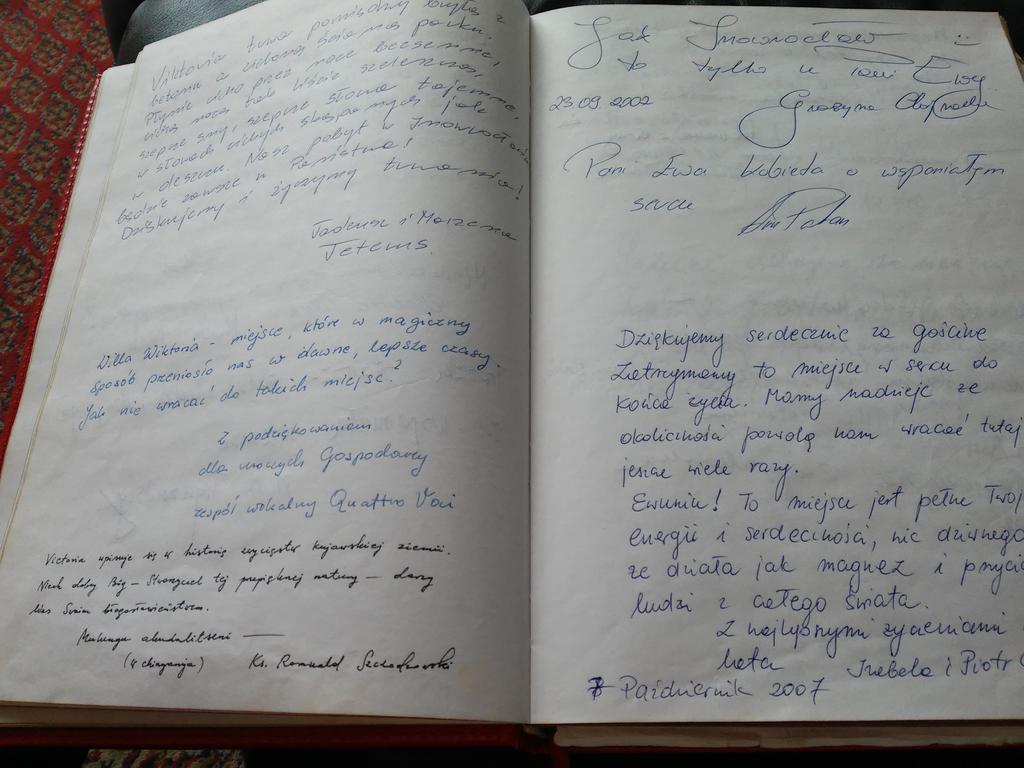 Wiktoria tuwa pomiędzy bryłą z
betonu a zieloną ścianą parku.
Płynie cicho przez noce bezsenne,
nocą liście szeleszczą,
szepcze sny, szepcze słowa tajemne,
w słowach cichych jak
w deszczu. Nasz pobyt w Inowrocławiu
będzie zawsze u Państwa!
Dziękujemy i życzymy trwania!
Tadeusz i Marzena
Tetems.
Willa Wiktoria - miejsce, które w magiczny
sposób przeniosło nas w dawne, lepsze czasy.
Jak nie wracać do takich miejsc?
Z podziękowaniem
dla uroczych Gospodarzy
zespół wokalny Quattro Voci
Victoria wpisuje się w historię zwycięstw kujawskiej ziemii.
Niech dobry Bóg - Stworzyciel tej przepięknej natury - darzy
Was Swoim błogosławieństwem.
(z kinganja) Ks. Romuald
Jak Inowrocław
to tylko u Pani Ewy
23.09.2002
Grażyna
Pani Ewa kobieta o wspaniałym
sercu
Dziękujemy serdecznie za gościnę
Zatrzymamy to miejsce w sercu do
końca życia. Mamy nadzieję że
okoliczności pozwolą nam wracać tutaj
jeszcze wiele razy.
Ewuniu! To miejsce jest pełne Twojej
energii i serdeczności, nic dziwnego
że działa jak magnez i
ludzi z całego świata.
Z najlepszymi życzeniami
Izabela i Piotr
Październik 2007